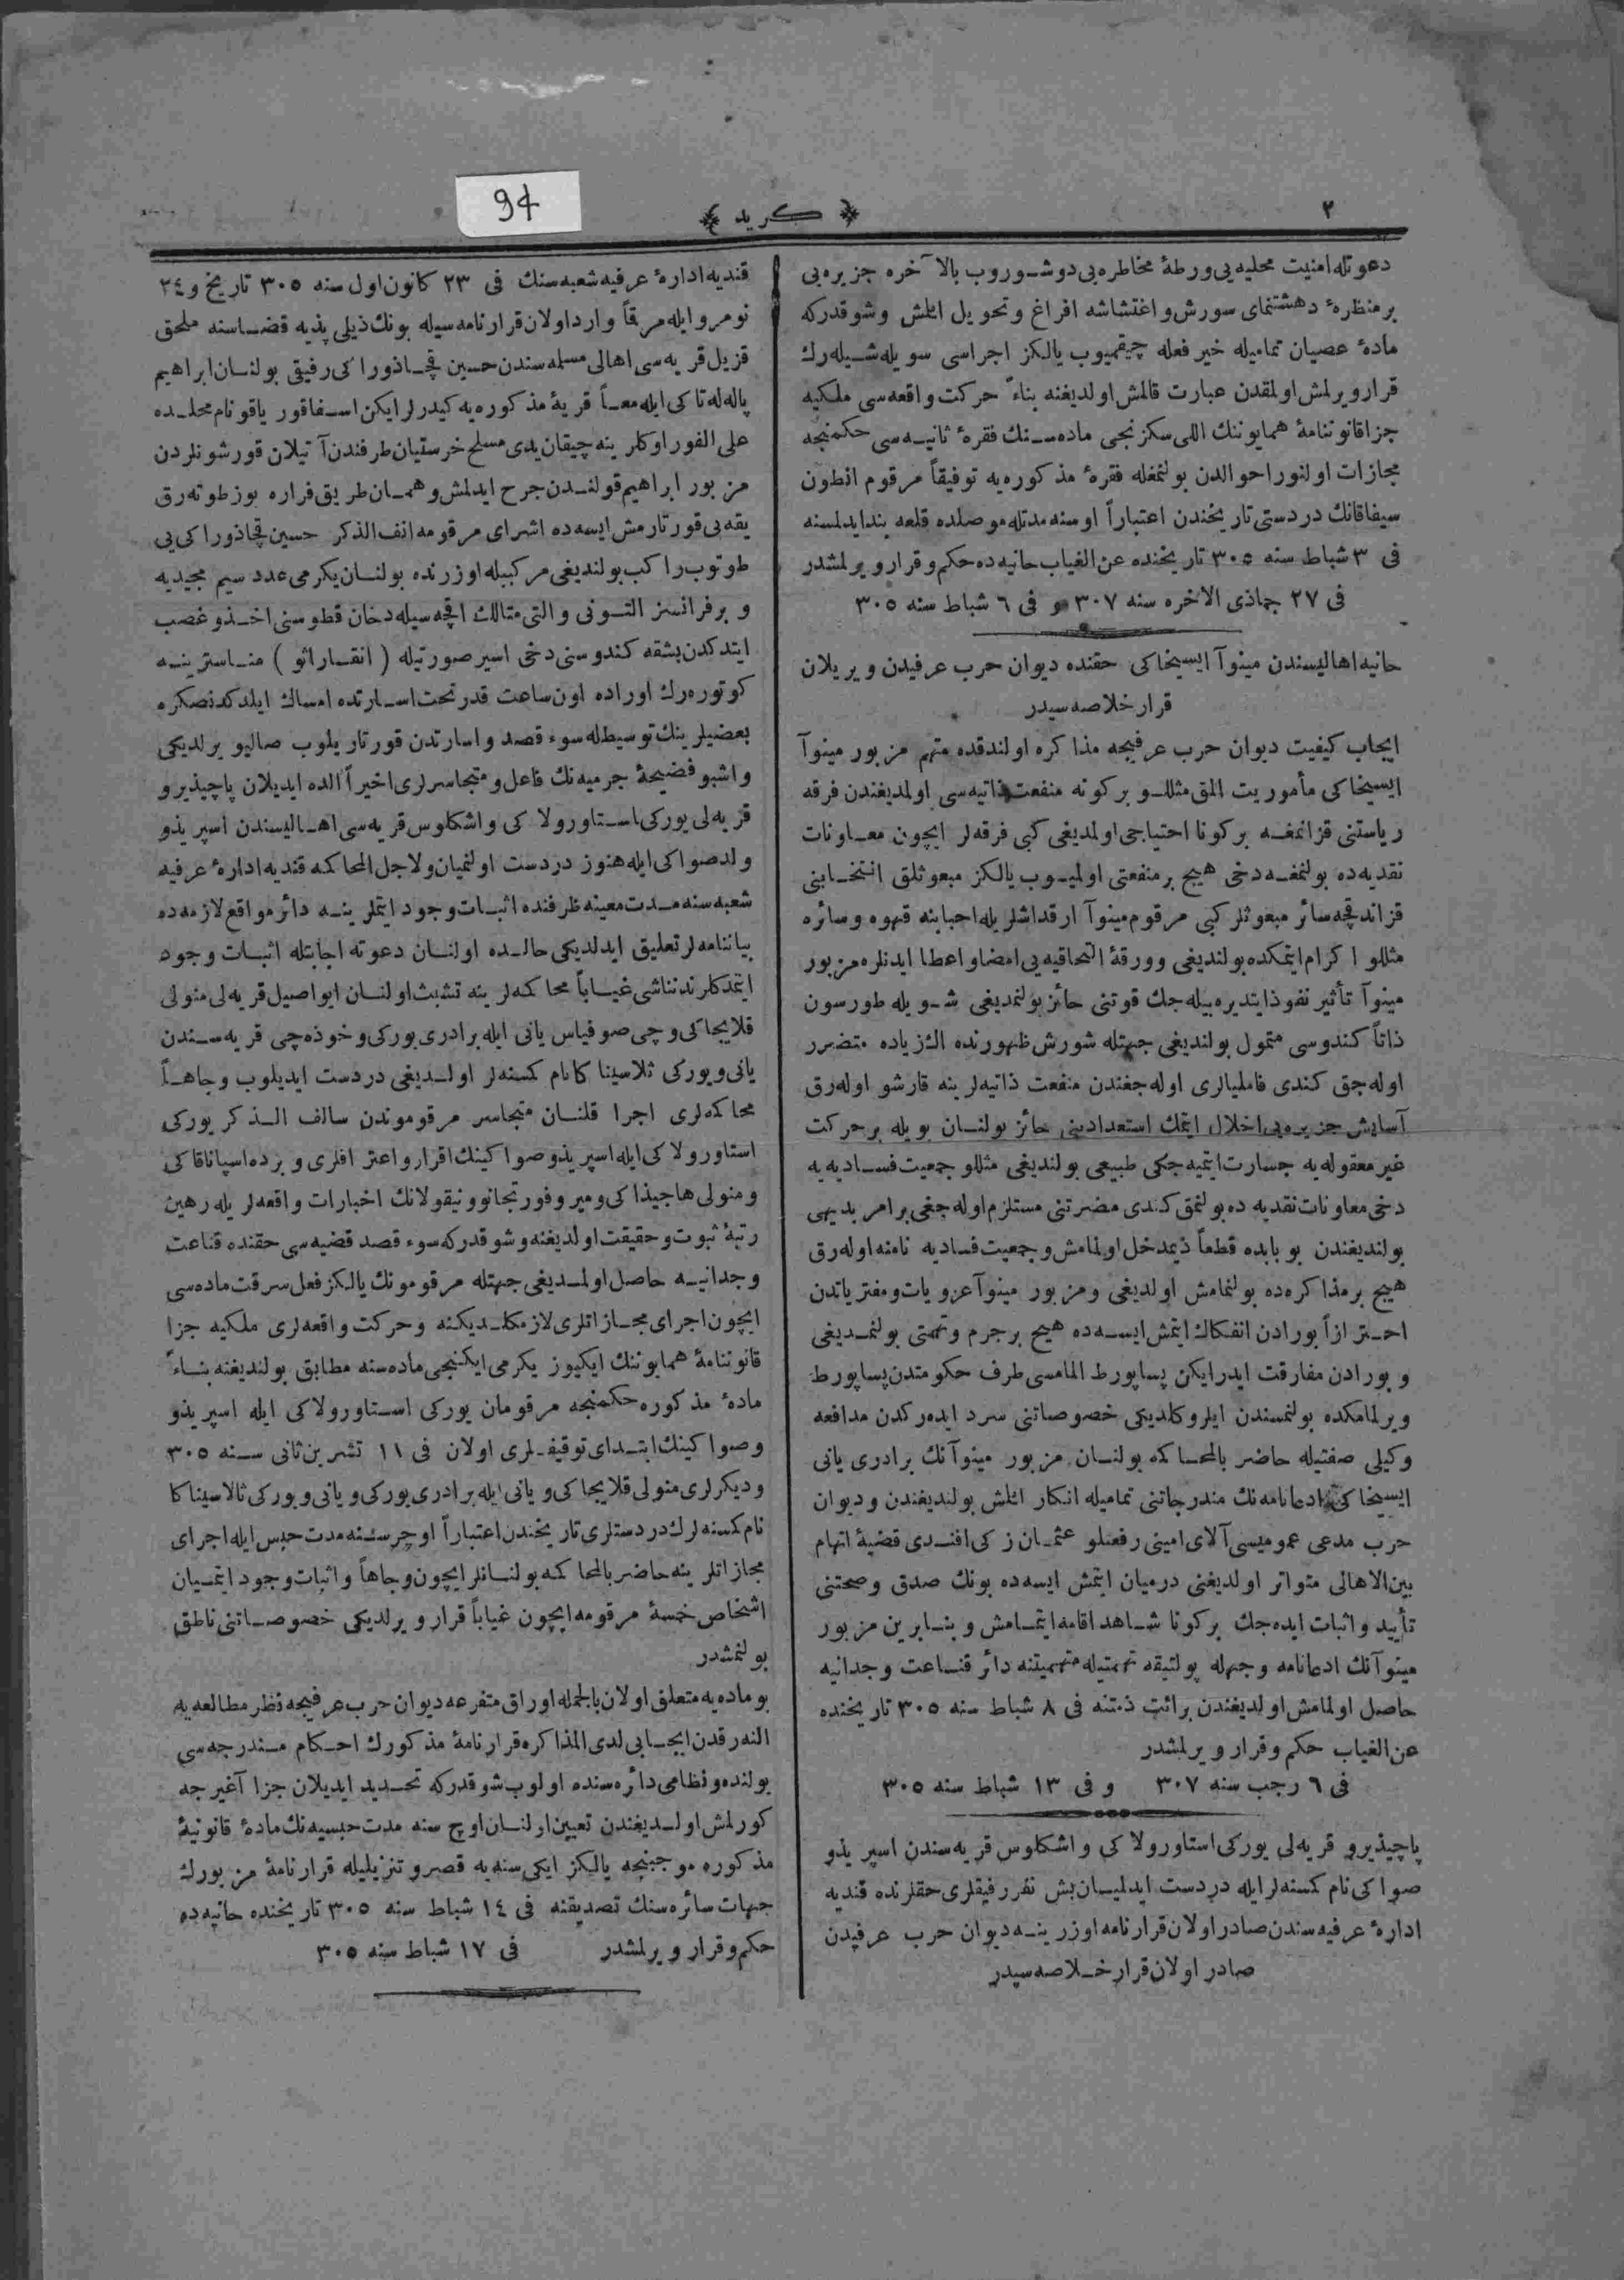 94
٢
﴿ كريد ﴾
دعوتله امنيت محليه‌يی ورطهٔ مخاطره‌يی دوشوروب بالآخره جزيره‌يی
بر منظرهٔ دهشتنمای سورش و اغتشاشه افراغ و تحويل ايلمش وشو قدركه
مادهٔ عصيان تماميله خير فعله چيقميوب يالكز اجراسی سويله‌شيله‌رك
قرار ويرلمش اولمقدن عبارت قالمش اولديغنه بناءً حركت واقعه‌سی ملكيه
جزا قانوننامهٔ همايوننك اللی سكزنجی ماده‌سنك فقرهٔ ثانيه‌سی حكمنجه
مجازات اولنور احوالدن بولنمغله فقرهٔ مذكوره‌يه توفيقاً مرقوم انطون
سيفاقانك دردستی تاريخندن اعتباراً اوسنه مدتله موصلده قلعه بند ايدلمسنه
فی ٣ شباط سنه ٣٠٥ تاريخنده عن الغياب حانيه‌ده حكم وقرار ويرلمشدر
فی ٢٧ جماذی الاخره سنه ٣٠٧ و فی ٦ شباط سنه ٣٠٥
حانيه اهاليسندن مينوآ ايسيخاكی حقنده ديوان حرب عرفيدن ويريلان
قرار خلاصه سيدر
ايجاب كيفيت ديوان حرب عرفيجه مذاكره اولندقده متهم مزبور مينوآ
ايسيخاكی مأموريت المق مثللو بركونه منفعت ذاتيه‌سی اولمديغندن فرقه
رياستنی قزانمغه بركونا احتياجی اولمديغی كبی فرقه‌لر ايچون معاونات
نقديه‌ده بولنمغه دخی هيچ بر منفعتی اولميوب يالكز مبعوثلق انتخابنی
قزاندقچه سائر مبعوثلر كبی مرقوم مينوآ ارقداشلريله احبابنه قهوه وسائره
مثللو اكرام ايتمكده بولنديغی وورقهٔ التحاقيه‌يی امضا واعطا ايدنلره مزبور
مينوآ تأثير نفوذ ايتديره بيله‌جك قوتنی حائز بولنمديغی شويله طورسون
ذاتاً كندوسی متمول بولنديغی جهتله شورش ظهورنده الك زياده متضرر
اوله‌جق كندی فاميليالری اوله‌جغندن منفعت ذاتيه‌لرينه قارشو اوله‌رق
آسايش جزيره‌يی اخلال ايتمك استعدادينی حائز بولنان بويله بر حركت
غير معقوله‌يه جسارت ايتميه‌جكی طبيعی بولنديغی مثللو جمعيت فساديه‌يه
دخی معاونات نقديه‌ده بولنمق كندی مضرتنی مستلزم اوله‌جغی بر امر بديهی
بولنديغندن بوبابده قطعاً ذيمدخل اولمامش وجمعيت فساديه نامنه اوله‌رق
هيچ بر مذاكره‌ده بولنمامش اولديغی ومزبور مينوآ عزويات ومفترياتدن
احترازاً بورادن انفكاك ايتمش ايسه‌ده هيچ بر جرم وتهمتی بولنمديغی
وبورادن مفارقت ايدرايكن پساپورط المامسی طرف حكومتدن پساپورط
ويرلمامكده بولنمسندن ايلروكلديكی خصوصاتنی سرد ايده‌ركدن مدافعه
وكيلی صفتيله حاضر بالمحاكمه بولنان مزبور مينوآنك برادری يانی
ايسيخاكی ادعانامه‌نك مندرجاتنی تماميله انكار ايلمش بولنديغندن وديوان
حرب مدعی عموميسی آلای امينی رفعتلو عثمان زكی افندی قضيهٔ اتهام
بين الاهالی متواتر اولديغنی درميان ايتمش ايسه‌ده بونك صدق وصحتنی
تأييد واثبات ايده‌جك بركونا شاهد اقامه ايتمامش وبنابرين مزبور
مينوآنك ادعانامه وجهله پولتيقه تهمتيله متهميتنه دائر قناعت وجدانيه
حاصل اولمامش اولديغندن برائت ذمتنه فی ٨ شباط سنه ٣٠٥ تاريخنده
عن الغياب حكم وقرار ويرلمشدر
فی ٦ رجب سنه ٣٠٧ و فی ١٣ شباط سنه ٣٠٥
پاچيذيرو قريه‌لی يوركی استاورولاكی واشكلوس قريه‌سندن اسپريذو
صواكی نام كسنه‌لر ايله دردست ايدليان بش نفر رفيقلری حقلرنده قنديه
ادارهٔ عرفيه‌سندن صادر اولان قرارنامه اوزرينه ديوان حرب عرفيدن
صادر اولان قرار خلاصه سيدر
قنديه ادارهٔ عرفيه شعبه‌سنك فی ٢٣ كانون اول سنه ٣٠٥ تاريخ و ٢٤
نومرو ايله مرقاً وارد اولان قرارنامه‌سيله بونك ذيلی پذيه قضاسنه ملحق
قزيل قريه‌سی اهالی مسلمه‌سندن حسين قچاذوراكی رفيقی بولنان ابراهيم
پاله‌له‌تاكی ايله معاً قريهٔ مذكوره‌يه كيدرلر ايكن اسفاقور ياقو نام محلده
علی الفور اوكلرينه چيقان يدی مسلح خرستيان طرفندن آتيلان قورشونلردن
مزبور ابراهيم قولندن جرح ايدلمش وهمان طريق فراره يوز طوته‌رق
يقه‌يی قورتارمش ايسه‌ده اشرای مرقومه انف الذكر حسين قچاذوراكی‌يی
طوتوب راكب بولنديغی مركبيله اوزرنده بولنان يكرمی عدد سيم مجيديه
وبر فرانسز التونی والتی متالك اقچه‌سيله دخان قطوسنی اخذ وغصب
ايتدكدن بشقه كندوسنی دخی اسير صورتيله ( انقاراثو ) مناسترينه
كوتوره‌رك اوراده اون ساعت قدر تحت اسارتده امساك ايلدكدنصكره
بعضيلرينك توسيطله سوء قصد واسارتدن قورتاريلوب صاليويرلديكی
واشبو فضيحهٔ جرميه‌نك فاعل ومتجاسرلری اخيراً الده ايديلان پاچيذيرو
قريه‌لی يوركی استاورولاكی واشكلوس قريه‌سی اهاليسندن اسپريذو
ولد صواكی ايله هنوز دردست اولنميان ولاجل المحاكمه قنديه ادارهٔ عرفيه
شعبه‌سنه مدت معينه ظرفنده اثبات وجود ايتملرينه دائر مواقع لازمه‌ده
بياننامه‌لر تعليق ايدلديكی حالده اولنان دعوته اجابتله اثبات وجود
ايتمدكلرندنناشی غياباً محاكمه‌لرينه تشبث اولنان ايواصيل قريه‌لی منولی
قلايجاكی وچی صوفياس يانی ايله برادری يوركی وخوذه‌چی قريه‌سندن
يانی ويوركی ثلاسينا كانام كسنه‌لر اولديغی دردست ايديلوب وجاهاً
محاكمه‌لری اجرا قلنان متجاسر مرقوموندن سالف الذكر يوركی
استاورولاكی ايله اسپريذو صواكينك اقرار واعترافلری وبرده اسپاناقاكی
ومنولی هاجيذاكی وميروفورتجانو ونيقولانك اخبارات واقعه‌لريله رهين
رتبهٔ ثبوت وحقيقت اولديغنه وشو قدركه سوء قصد قضيه‌سی حقنده قناعت
وجدانيه حاصل اولمديغی جهتله مرقومونك يالكز فعل سرقت ماده‌سی
ايچون اجرای مجازاتلری لازمكلديكنه وحركت واقعه‌لری ملكيه جزا
قانوننامهٔ همايوننك ايكيوز يكرمی ايكنجی ماده‌سنه مطابق بولنديغنه بناءً
مادهٔ مذكوره حكمنجه مرقومان يوركی استاورولاكی ايله اسپريذو
وصواكينك ابتدای توقيفلری اولان فی ١١ تشرين ثانی سنه ٣٠٥
وديكرلری منولی قلايجاكی ويانی ايله برادری يوركی ويانی ويوركی ثالاسيناكا
نام كسنه‌لرك دردستلری تاريخندن اعتباراً اوچر سنه مدت حبس ايله اجرای
مجازاتلرينه حاضر بالمحاكمه بولنانلر ايچون وجاهاً واثبات وجود ايتميان
اشخاص خمسهٔ مرقومه ايچون غياباً قرار ويرلديكی خصوصاتنی ناطق
بولنمشدر
بو ماده‌يه متعلق اولان بالجمله اوراق متفرعه ديوان حرب عرفيجه نظر مطالعه‌يه
النه‌رقدن ايجابی لدی المذاكره قرارنامهٔ مذكورك احكام مندرجه‌سی
يولنده ونظامی دائره‌سنده اولوب شو قدركه تحديد ايديلان جزا آغيرجه
كورلمش اولديغندن تعيين اولنان اوچ سنه مدت حبسيه‌نك مادهٔ قانونيهٔ
مذكوره موجبنجه يالكز ايكی سنه‌يه قصر وتنزيليله قرارنامهٔ مزبورك
جهات سائره‌سنك تصديقنه فی ١٤ شباط سنه ٣٠٥ تاريخنده حانيه‌ده
حكم وقرار ويرلمشدر فی ١٧ شباط سنه ٣٠٥